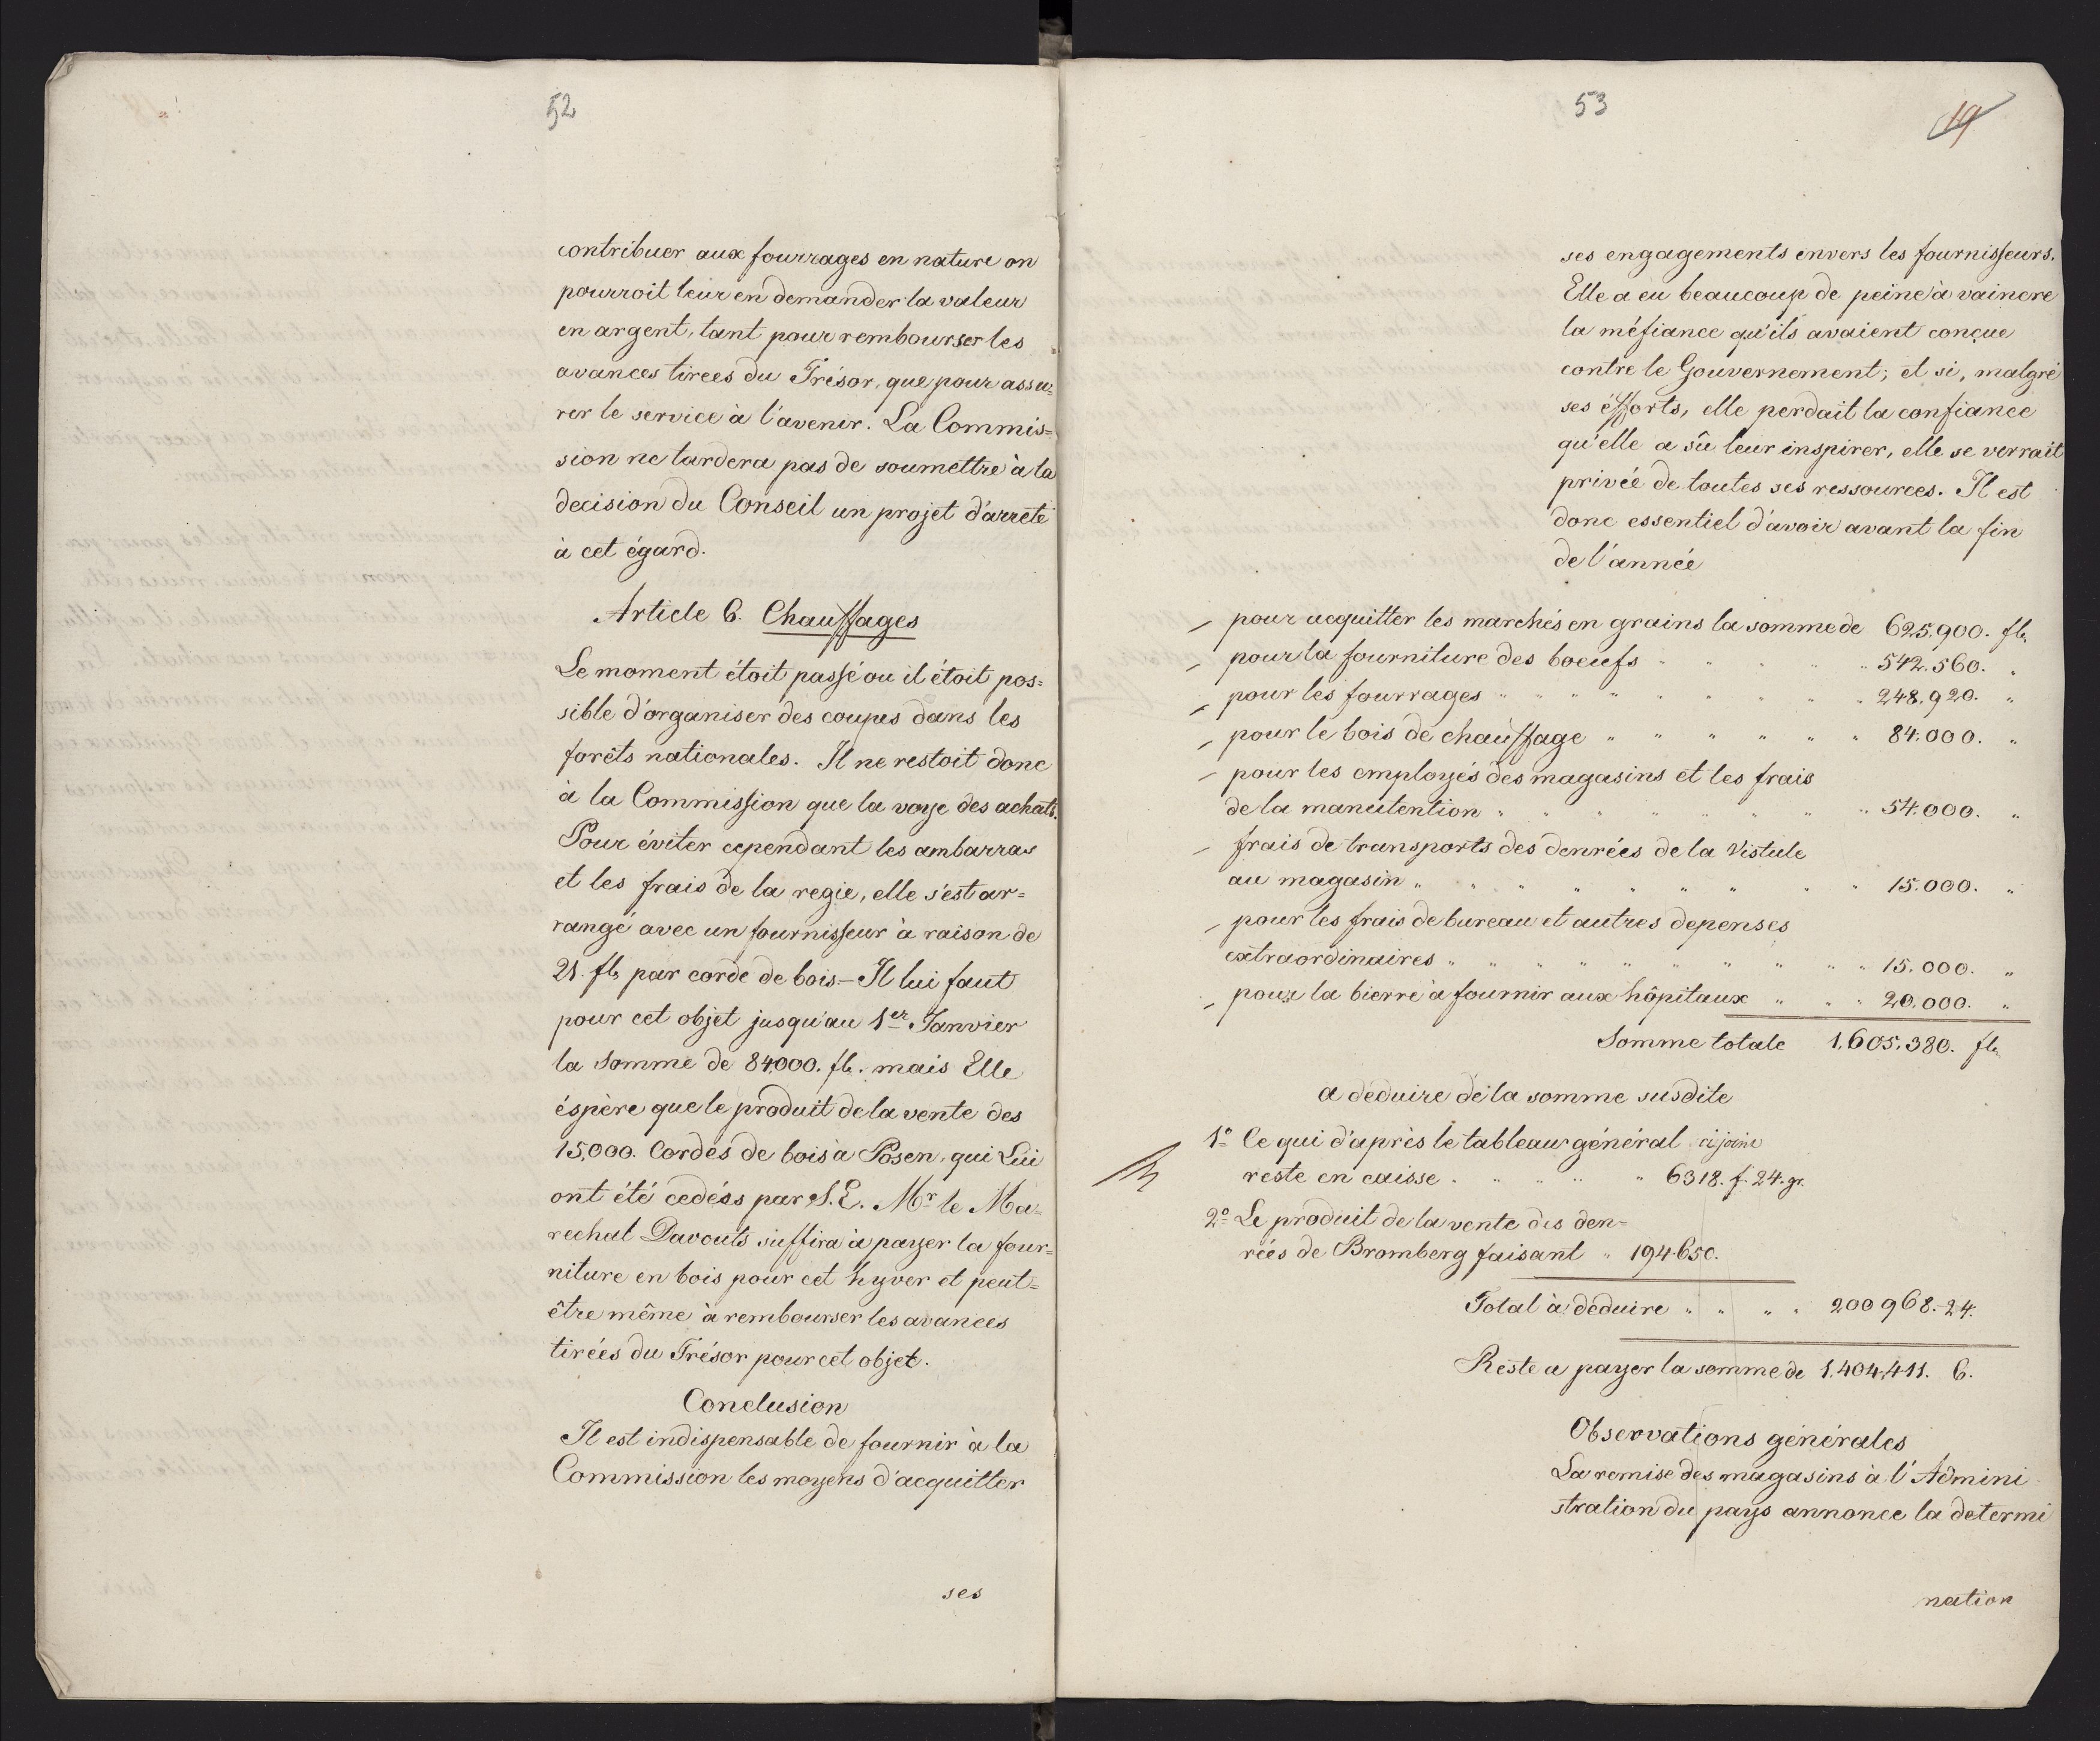 52
contribuer aux fourrages en nature on
pourroit leur en demander la valeur
en argent, tant pour rembourser les
avances tirees du Trésor, que pour assu=
rer le service à l'avenir. La Commis=
sion ne tardera pas de soumettre à la
decision du Conseil un projet d'arrêté
à cet égard.
Article 6. Chauffages
Le moment étoit passé ou il étoit pos=
sible d'organiser des coupes dans les
forêts nationales. Il ne restoit donc
à la Commission que la voye des achats.
Pour éviter cependant les ambarras
et les frais de la regie, elle s'est ar=
rangé avec un fournisseur à raison de
21. fl. par corde de bois.- Il lui faut
pour cet objet jusqu'au 1er Janvier
la Somme de 84,000. fl. mais Elle
éspère que le produit de la vente des
15,000. Cordes de bois à Posen, qui Lui
ont été cedéss par S. E. Mr le Ma=
rechal Davouts suffira à payer la four=
niture en bois pour cet hyver et peut=
être même à rembourser les avances
tirées du Trésor pour cet objet.
Conclusion
Il est indispensable de fournir à la
Commission les moyens d'acquitter
ses
53
19
ses engagements envers les fournisseurs.
Elle a eu beaucoup de peine à vaincre
la méfiance qu'ils avaient conçue
contre le Gouvernement; et si, malgré
ses éfforts, elle perdait la confiance
qu'elle a sû leur inspirer, elle se verrait
privée de toutes ses ressources. Il est
donc essentiel d'avoir avant la fin
de l'année
- pour acquitter les marchés en grains la somme de 625.900. fl.
- pour la fourniture des boeufs " " " " " 542.560. "
- pour les fourrages " " " " " " " " 248.920. "
- pour le bois de chauffage " " " " " " 84.000. "
- pour les employés des magasins et les frais
de la manutention " " " " " " " " 54.000. "
- frais de transports des denrées de la Vistule
au magasin " " " " " " " " " 15.000. "
- pour les frais de bureau et autres depenses
extraordinaires " " " " " " " " " " 15.000. "
- pour la bierre à fournir aux hôpitaux " " " 20.000. "
Somme totale 1.605.380. fl.
a déduire de la somme susdite
1o Ce qui d'après le tableau général ci joint
reste en caisse " " " " " 6318. f. 24. gr.
2o Le produit de la vente des den=
rées de Bromberg faisant " 194650.
Total à déduire " " " " 200968.-24.
Reste a payer la somme de 1.404.411. 6.
Observations générales
La remise des magasins à l'Admini
stration du pays annonce la determi
nation